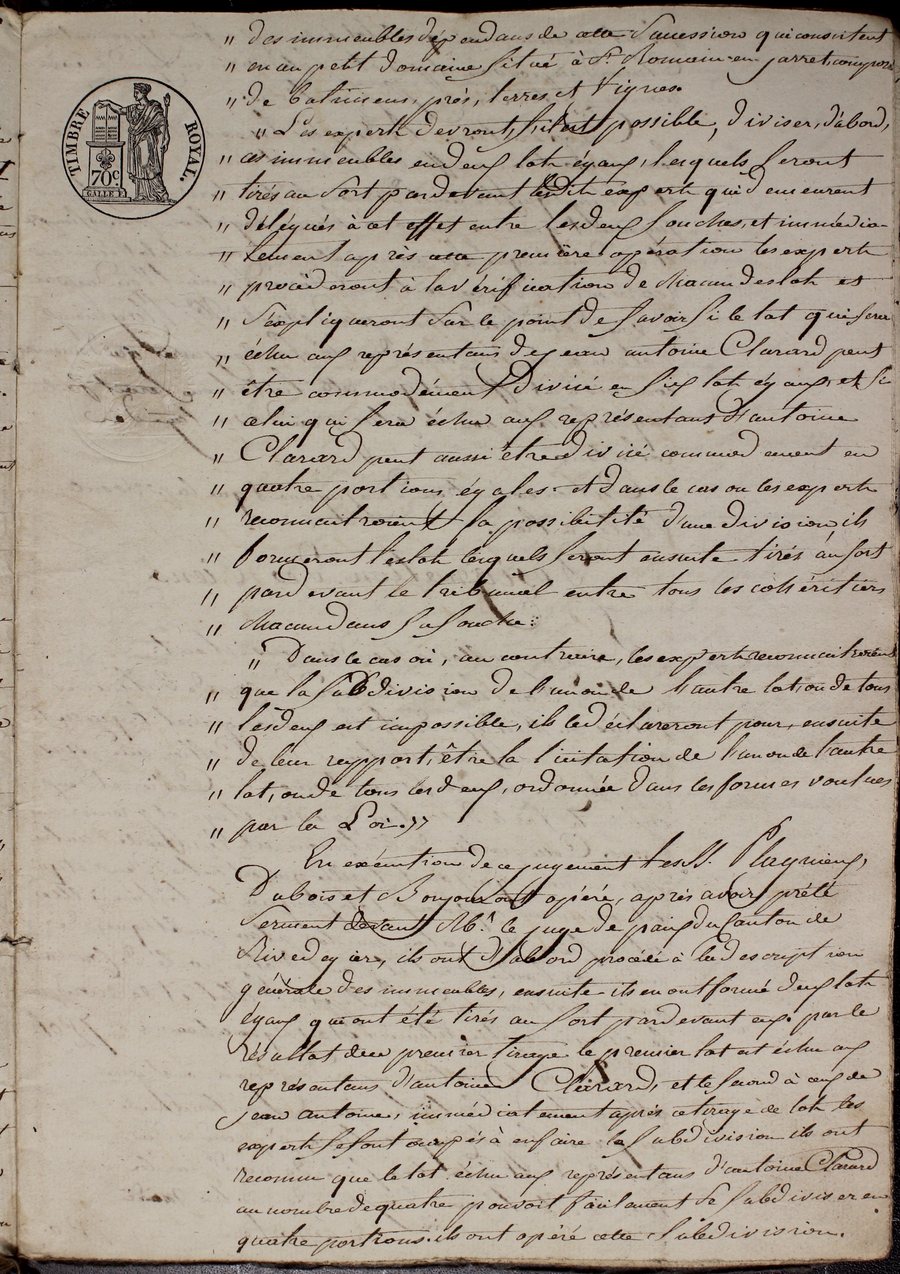 TIMBRE ROYAL.
70c
" des immeubles dépendans de cette Succession qui consistent
" en un petit domaine situé à St. Romain en jarret, composé
" de batimens, prés, terres, et vignes.
" Les experts devront, s'il est possible, diviser, d'abord,
" ces immeubles en deux lots égaux, lesquels seront
" tirés au sort pardevant lesdits experts qui demeurent
" délégués à cet effet entre les deux souches, et immédia-
" tement après cette première opération les experts
" procéderont à la vérification de chacun des lots et
" s'expliqueront sur le point de savoir si le lot qui sera
" échu aux représentans de jean antoine Clarard peut
" être commodément divisé en six lots égaux, et si
" celui qui sera échu aux représentans d'antoine
" Clarard peut aussi être divisé commodément en
" quatre portions égales. et dans le cas ou les experts
" reconnaitroient la possibilité d'une division ils
" formeront les lots lesquels seront ensuite tirés au sort
" pardevant le tribunal entre tous les cohéritiers
" chacun dans sa souche.
" Dans le cas où, au contraire, les experts reconnaitroient
" que la subdivision de l'un ou de l'autre lot ou de tous
" les deux est impossible, ils le déclareront pour, ensuite
" de leur rapport, être la licitation de l'un ou de l'autre
" lot, ou de tous les deux, ordonnée dans les formes voulues
" par la Loi. "
En exécution de ce jugement les SS. Plagnieux,
Dubois et Bonjour ont opéré, après avoir prêté
serment devant Mr. le juge de paix du Canton de
Rivedegier, ils ont d'abord procédé à la description
générale des immeubles, ensuite ils en ont formé deux lots
égaux qui ont été tirés au sort pardevant eux. par le
résultat de ce premier tirage le premier lot est échu aux
représentans d'antoine Clarard, et le second à ceux de
jean antoine, immédiatement après ce tirage de lots les
experts se sont occupés à en faire la subdivision ils ont
reconnu que le lot échu aux représentans d'antoine Clarard
au nombre de quatre pouvoit facilement se subdiviser en
quatre portions. ils ont opéré cette subdivision.